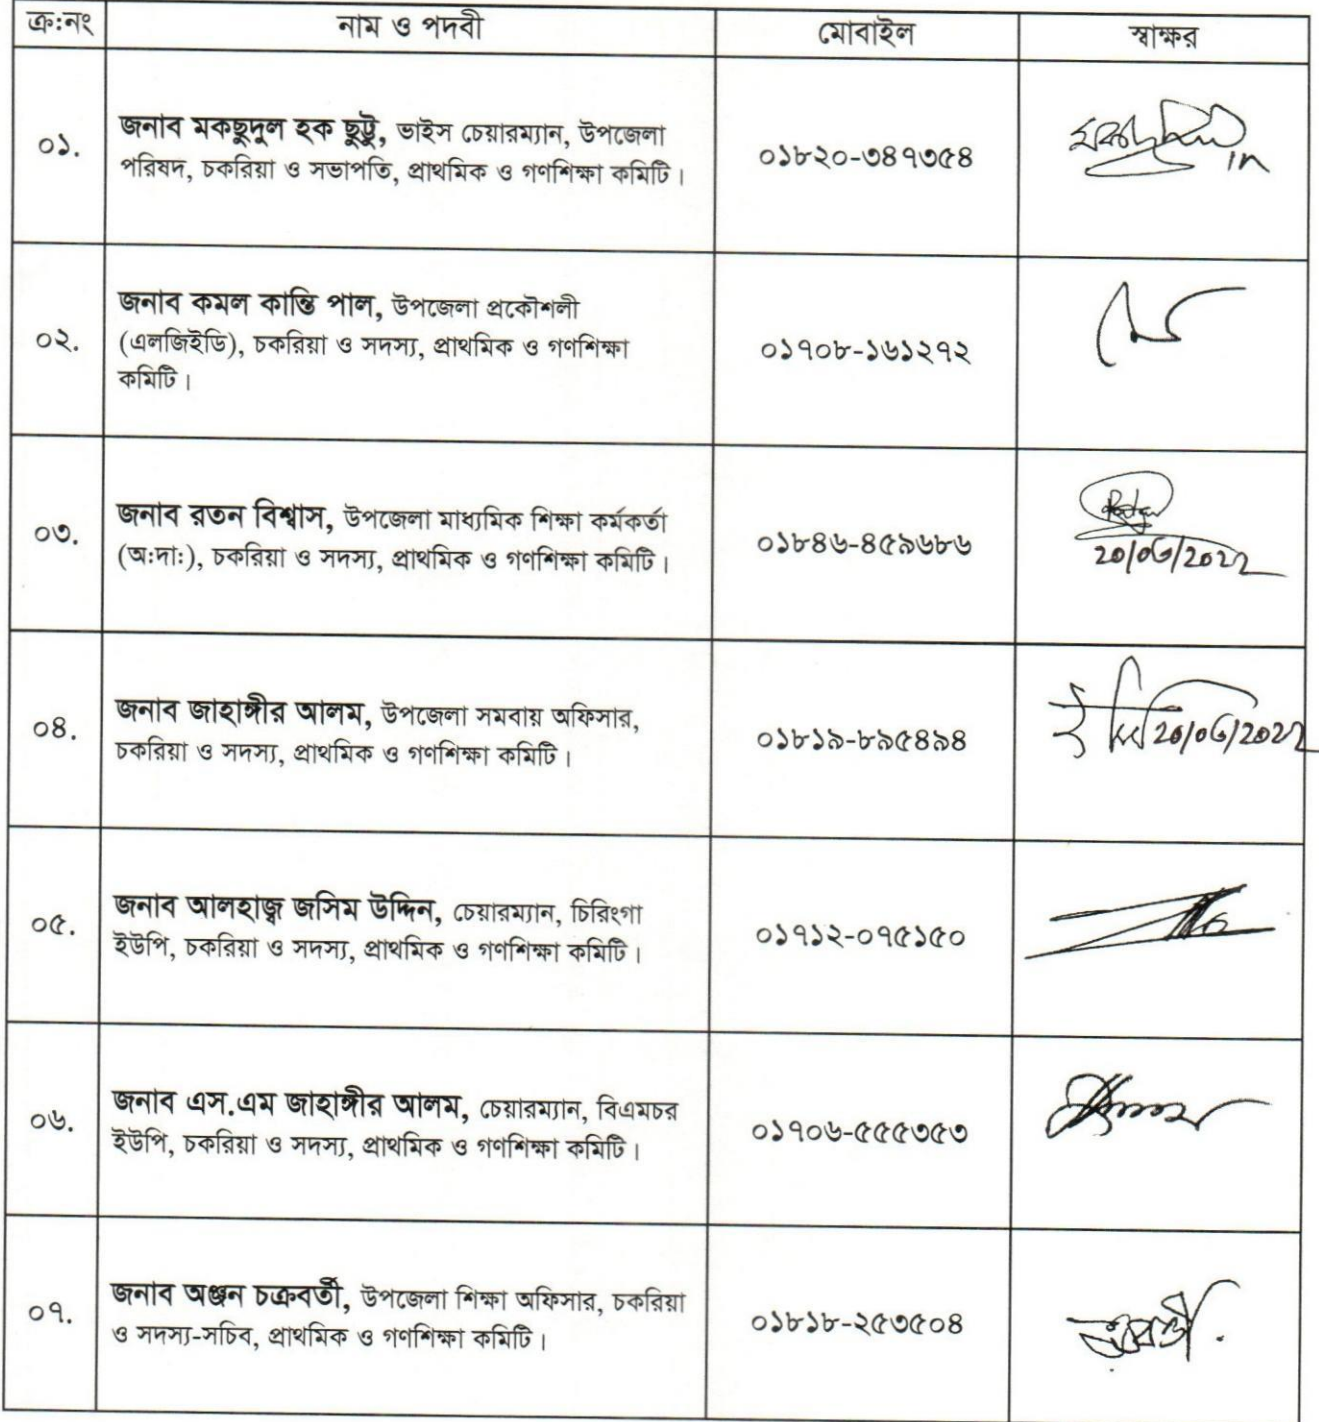 ক্র:নং নাম ও পদবী মোবাইল স্বাক্ষর
০১. জনাব মকছুদুল হক ছুট্টু, ভাইস চেয়ারম্যান, উপজেলা
পরিষদ, চকরিয়া ও সভাপতি, প্রাথমিক ও গণশিক্ষা কমিটি। ০১৮২০-৩৪৭৩৫৪
০২. জনাব কমল কান্তি পাল, উপজেলা প্রকৌশলী
(এলজিইডি), চকরিয়া ও সদস্য, প্রাথমিক ও গণশিক্ষা
কমিটি। ০১৭০৮-১৬১২৭২
০৩. জনাব রতন বিশ্বাস, উপজেলা মাধ্যমিক শিক্ষা কর্মকর্তা
(অ:দা:), চকরিয়া ও সদস্য, প্রাথমিক ও গণশিক্ষা কমিটি। ০১৮৪৬-৪৫৯৬৮৬
20/06/2022
০৪. জনাব জাহাঙ্গীর আলম, উপজেলা সমবায় অফিসার,
চকরিয়া ও সদস্য, প্রাথমিক ও গণশিক্ষা কমিটি। ০১৮১৯-৮৯৫৪৯৪
20/06/2022
০৫. জনাব আলহাজ্ব জসিম উদ্দিন, চেয়ারম্যান, চিরিংগা
ইউপি, চকরিয়া ও সদস্য, প্রাথমিক ও গণশিক্ষা কমিটি। ০১৭১২-০৭৫১৫০
০৬. জনাব এস.এম জাহাঙ্গীর আলম, চেয়ারম্যান, বিএমচর
ইউপি, চকরিয়া ও সদস্য, প্রাথমিক ও গণশিক্ষা কমিটি। ০১৭০৬-৫৫৫৩৫৩
০৭. জনাব অঞ্জন চক্রবর্তী, উপজেলা শিক্ষা অফিসার, চকরিয়া
ও সদস্য-সচিব, প্রাথমিক ও গণশিক্ষা কমিটি। ০১৮১৮-২৫৩৫০৪